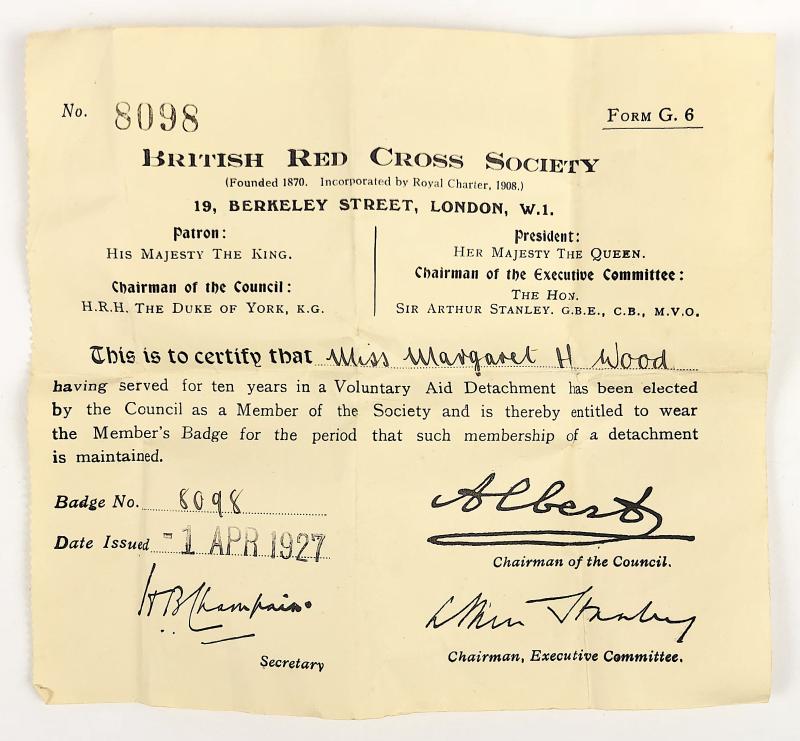 No. 8098
FORM G. 6
BRITISH RED CROSS SOCIETY
(Founded 1870. Incorporated by Royal Charter, 1908.)
19, BERKELEY STREET, LONDON, W.1.
Patron:
HIS MAJESTY THE KING.
Chairman of the Council:
H.R.H. THE DUKE OF YORK, K.G.
President:
HER MAJESTY THE QUEEN.
Chairman of the Executive Committee:
THE HON.
SIR ARTHUR STANLEY. G.B.E., C.B., M.V.O.
This is to certify that Miss Margaret H Wood
having served for ten years in a Voluntary Aid Detachment has been elected
by the Council as a Member of the Society and is thereby entitled to wear
the Member's Badge for the period that such membership of a detachment
is maintained.
Badge No. 8098
Date Issued -1 APR 1927
HB Champain.
Secretary
Albert
Chairman of the Council.
Stanley
Chairman, Executive Committee.